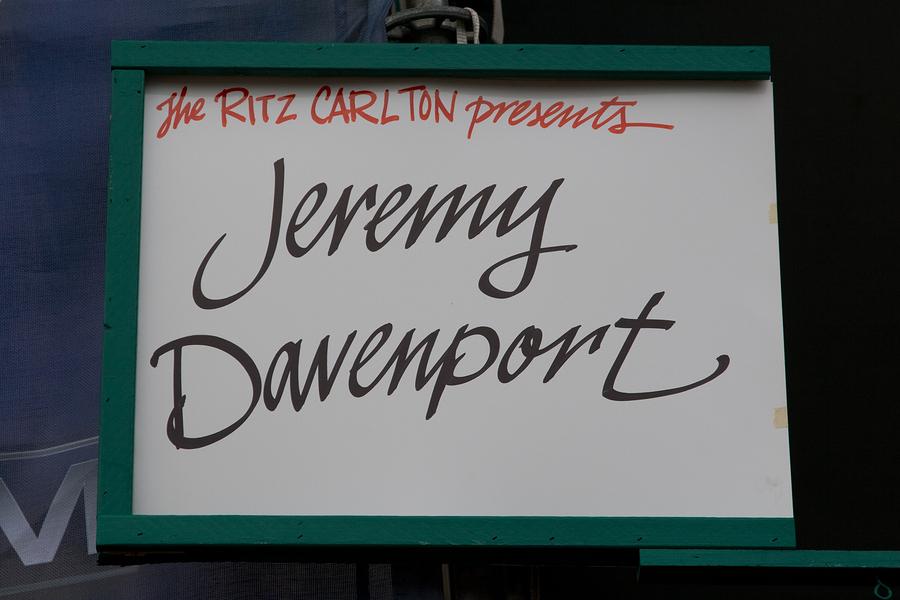 The RITZ CARLTON presents
Jeremy
Davenport